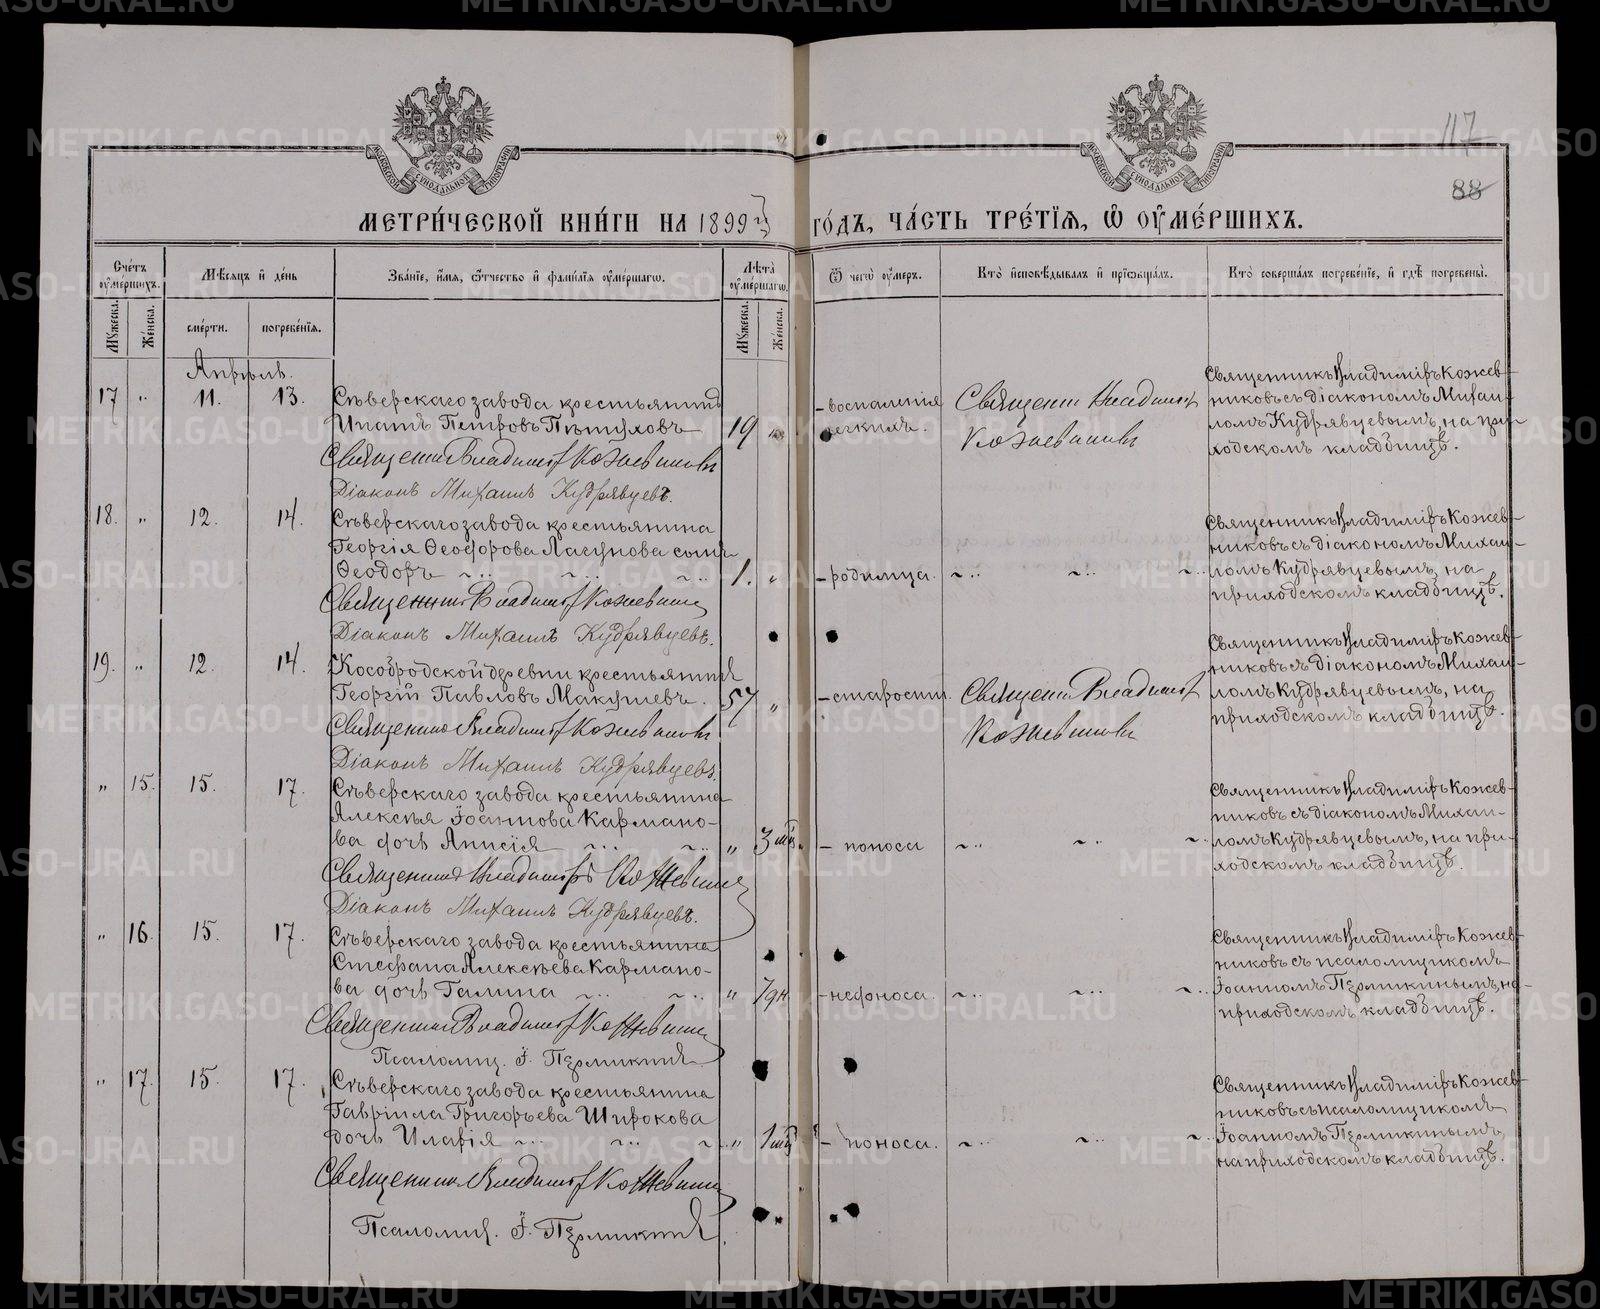 117
88
МЕТРИ́ЧЕСКОЙ КНИ́ГИ НА 1899 г. ГО́ДЪ, ЧА́СТЬ ТРЕ́ТЇѦ, Ѡ ОУ҆МЕ́РШИХЪ.
Сче́тъ оу҆ме́ршихъ.
Мѣ́сяцъ и҆ де́нь
Зва́нїе, и҆́мя, ѻ҆́тчество и҆ фами́лїя оу҆ме́ршагѡ.
Лѣ́та оу҆ме́ршагѡ.
Ѿ чегѡ̀ оу҆́меръ.
Кто̀ и҆сповѣ́дывалъ и҆ прїѡбща́лъ.
Кто̀ соверша́лъ погребе́нїе, и҆ гдѣ̀ погребены̀.
Мꙋ́жеска.
Же́нска.
сме́рти.
погребе́нїя.
Мꙋ́жеска.
Же́нска.
Апрѣль.
17 „ 11. 13. Сѣверскаго завода крестьянинъ
Ипатъ Петровъ Пѣтуховъ 19 „
Священникъ Владиміръ Кожевниковъ
Діаконъ Михаилъ Кудрявцевъ.
- воспаленія
легкихъ.
Священн Владимір
Кожевниковъ
Священникъ Владиміръ Кожев-
никовъ съ діакономъ Михаи-
ломъ Кудрявцевымъ, на при-
ходскомъ кладбищѣ.
18. „ 12. 14. Сѣверскаго завода крестьянина
Георгія Ѳеодорова Лагунова сынъ
Ѳеодоръ 1. „
Священникъ Владиміръ Кожевник
Діаконъ Михаилъ Кудрявцевъ.
- родимца.
Священникъ Владиміръ Кожев-
никовъ съ діакономъ Михаи-
ломъ Кудрявцевымъ, на
приходскомъ кладбищѣ.
19. „ 12. 14. Кособродской деревни крестьянинъ
Георгій Павловъ Макушевъ. 57 „
Священникъ Владиміръ Кожевниковъ
Діаконъ Михаилъ Кудрявцевъ.
- старости.
Священн Владимір
Кожевниковъ
Священникъ Владиміръ Кожев-
никовъ съ діакономъ Михаи-
ломъ Кудрявцевымъ, на
приходскомъ кладбищѣ.
„ 15. 15. 17. Сѣверскаго завода крестьянина
Алексѣя Іоаннова Кармано-
ва дочь Анисія „ 3 мц.
Священникъ Владиміръ Кожевник
Діаконъ Михаилъ Кудрявцевъ.
- поноса
Священникъ Владиміръ Кожев-
никовъ съ діакономъ Михаи-
ломъ Кудрявцевымъ, на при-
ходскомъ кладбищѣ.
„ 16. 15. 17. Сѣверскаго завода крестьянина
Стефана Алексѣева Кармано-
ва дочь Галина „ 7 дн.
Священникъ Владиміръ Кожевник
Псаломщ. І. Пермикинъ
- недоноса.
Священникъ Владиміръ Кожев-
никовъ съ псаломщикомъ
Іоанномъ Пермикинымъ, на
приходскомъ кладбищѣ.
„ 17. 15. 17. Сѣверскаго завода крестьянина
Гавріила Григорьева Широкова
дочь Иларія „ 1 мц
Священникъ Владиміръ Кожевник
Псаломщ. І. Пермикинъ.
- поноса.
Священникъ Владиміръ Кожев-
никовъ съ псаломщикомъ
Іоанномъ Пермикинымъ,
на приходскомъ кладбищѣ.
METRIKI.GASO-URAL.RU